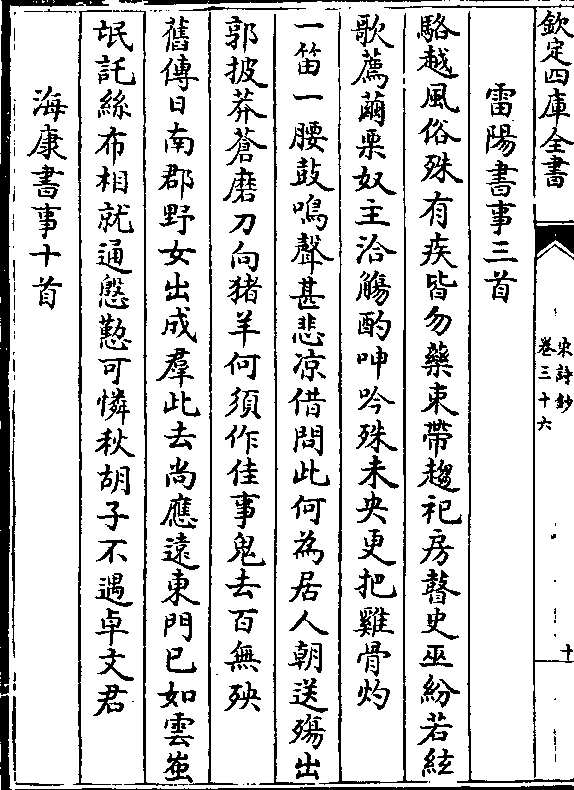 欽定四庫全書
宋詩鈔
卷三十六
十
雷陽書事三首
駱越風俗殊有疾皆勿藥束帶趨祀房瞽史巫紛若絃
歌薦繭栗奴主洽觴酌呻吟殊未央更把雞骨灼
一笛一腰鼓鳴聲甚悲凉借問此何為居人朝送殤出
郭披莽蒼磨刀向猪羊何須作佳事鬼去百無殃
舊傳日南郡野女出成羣此去尚應遠東門已如雲蚩
氓託絲布相就通慇懃可憐秋胡子不遇卓文君
海康書事十首